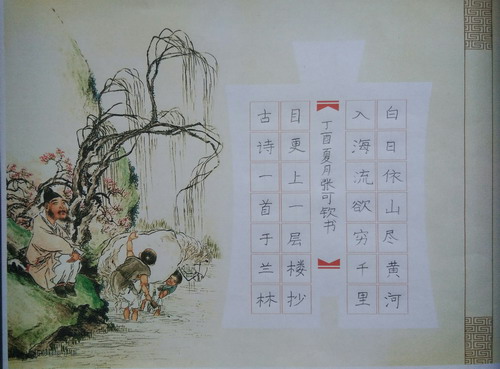 白日依山尽黄河
入海流欲穷千里
目更上一层楼抄
古诗一首于兰林
丁酉夏月张可钦书